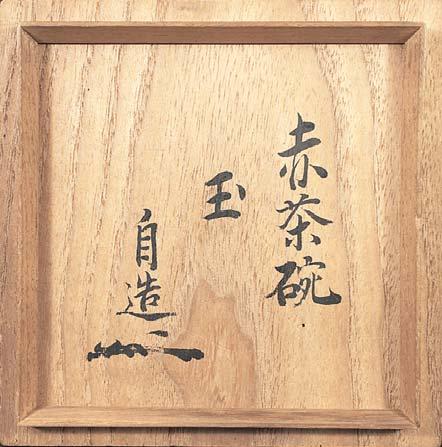 赤茶碗
玉
自造